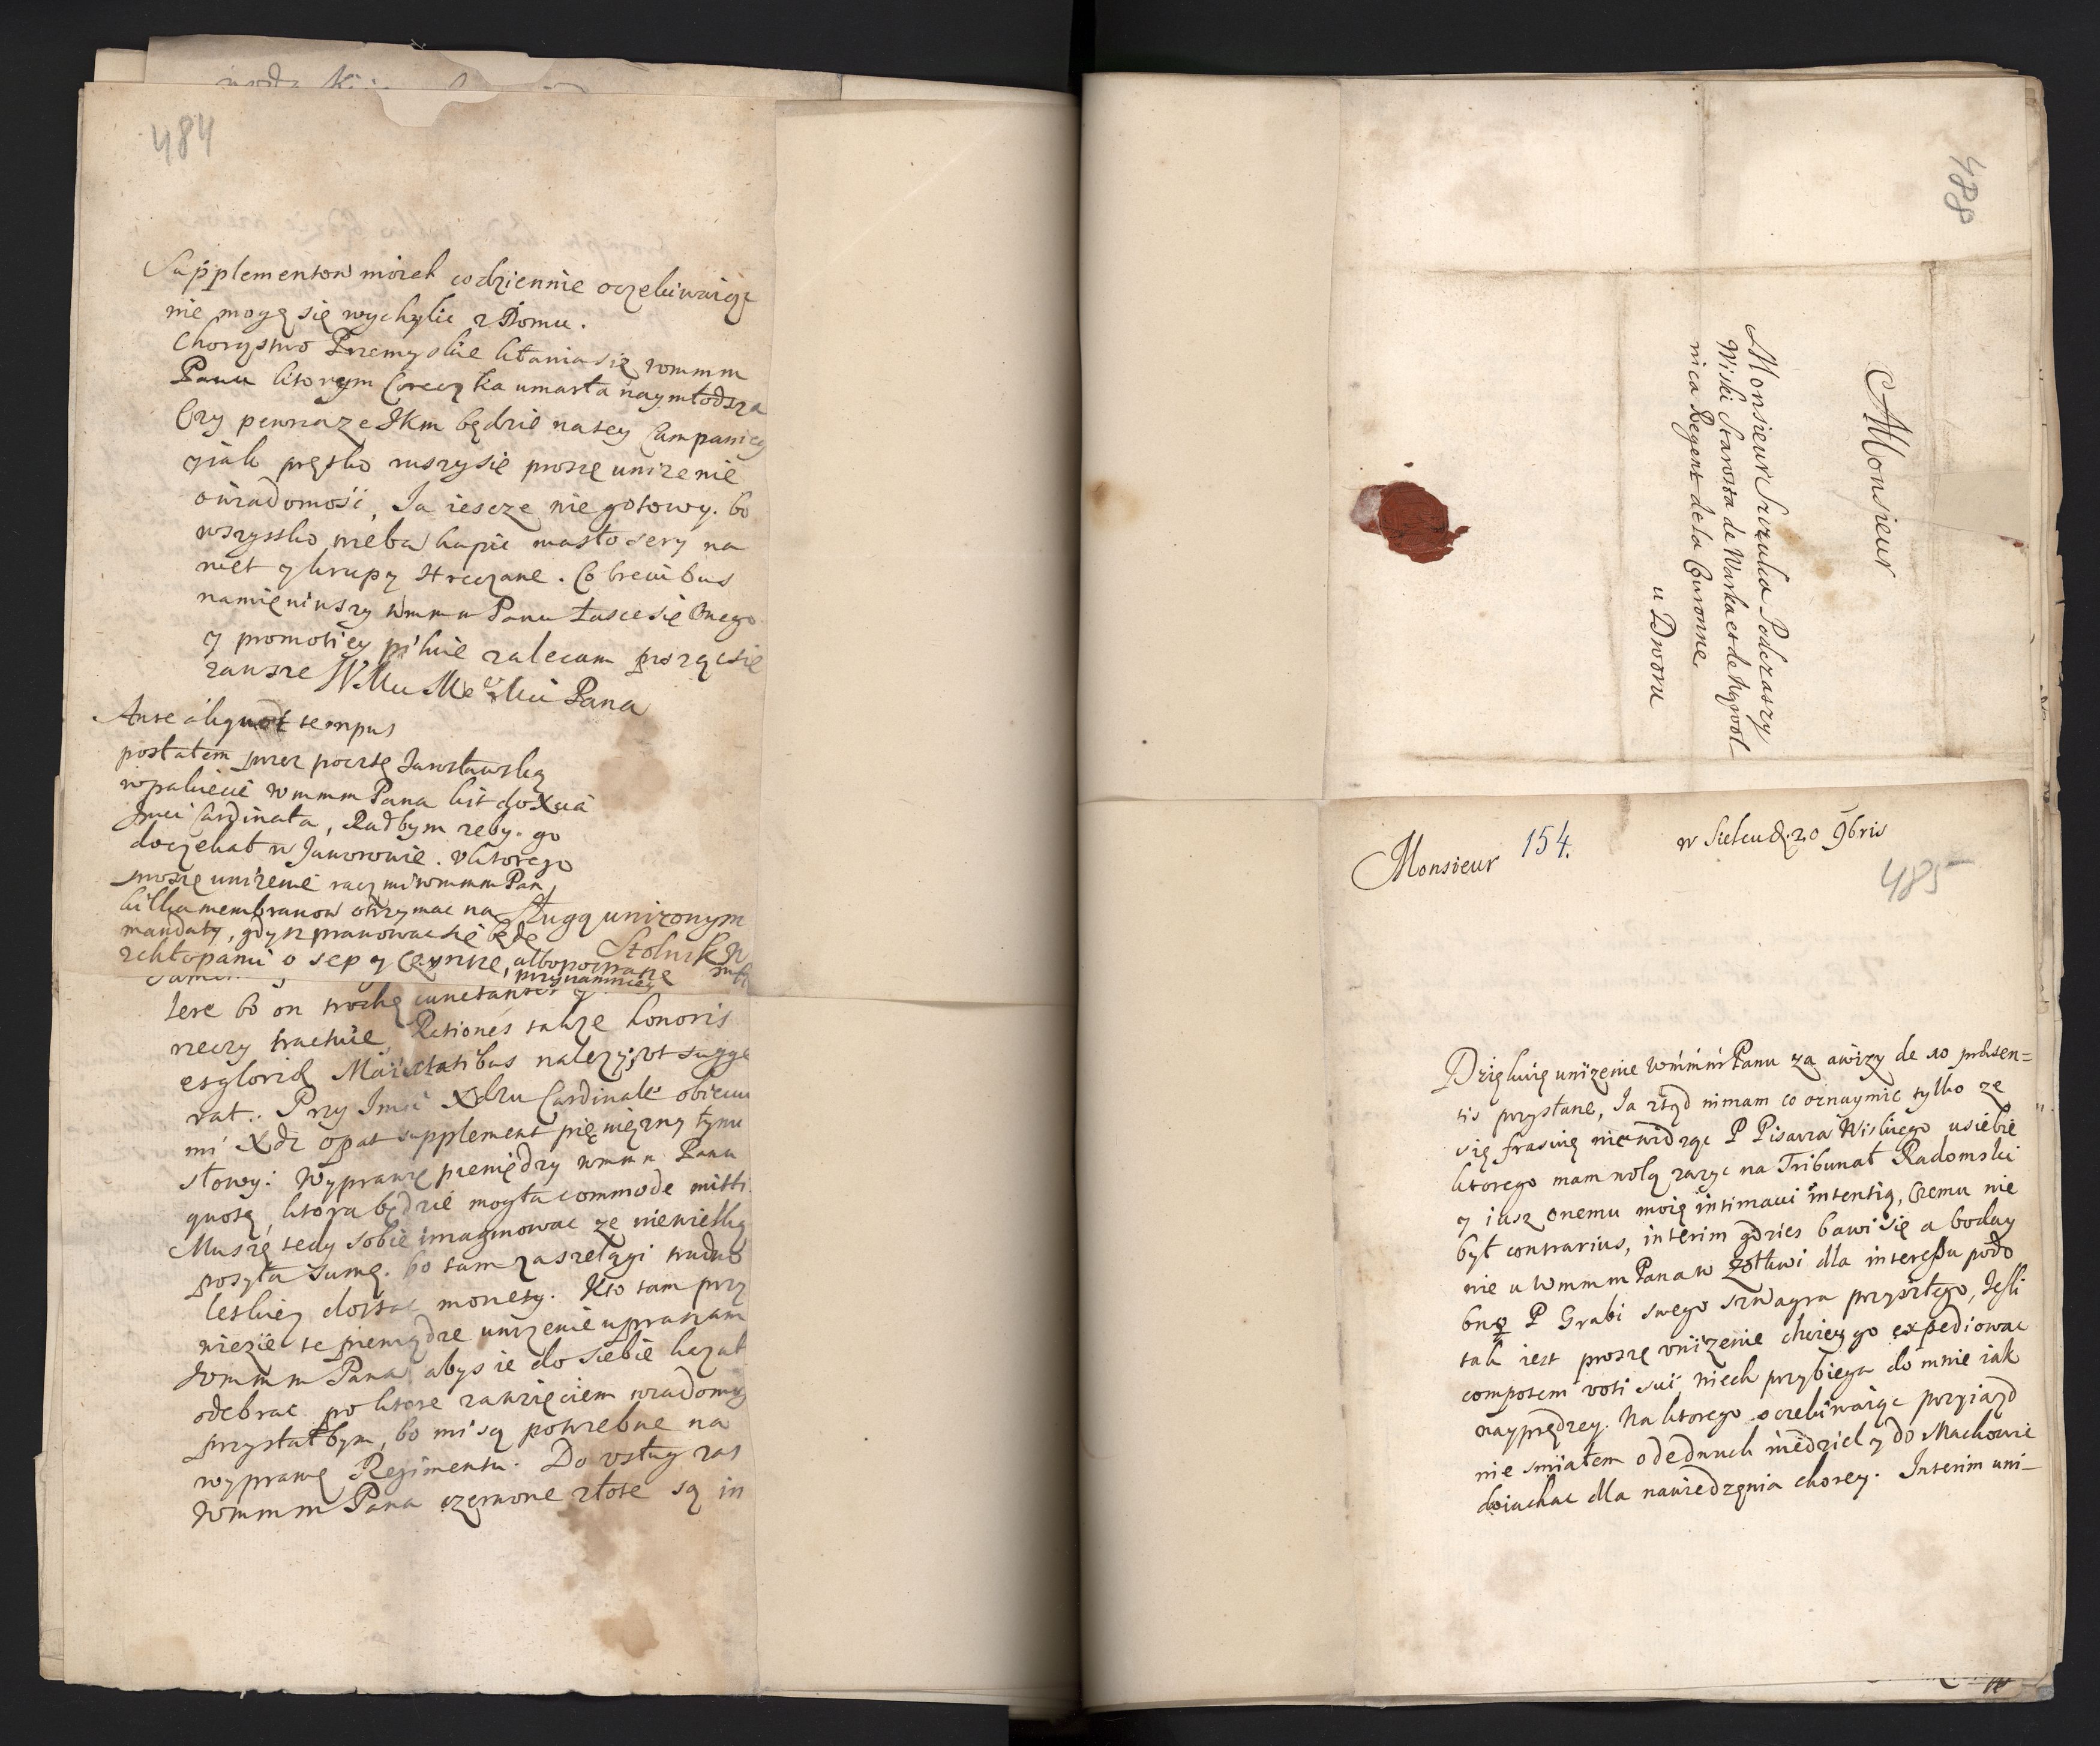 484
Supplementow mórek codziennie oczekiwaiąc
nie mogę się wychylic z Domu.
Chorąstwo Przemyskie kłania się wmmm
Panu ktorym Coreczka umarła naymłodsza
Czy pewna ze JKm będzie na tey Campaniey
y iak prętko ruszy sie proszę unizenie
o wiadomość, Ja iescze nie gotowy. bo
wszystko trzeba kupic masło sery na
wet y krupy Hreczane. Co brevibus
namieniwszy wmmu Panu Łasce się Onego
y promotiey pilnie zalecam pisząc się
zawsze WMu Me Mci Pana
Ante aliquot tempus
posłałem przez pocztę Jarosławską
w pakiecie wmmm Pana list do Xcia
Jmci Cardinała, Radbym zeby go
doczekał w Jaworowie. v ktorego
proszę unizenie racz mi wmmm Pan
kilka membranow otrzymac na
mandaty, gdy sz prawowac się będę
z chłopami o sep y czynsze, albo
przynamniey
Sługą unizonym
Stolnik
tere bo on trochę cunctanter
rzeczy tractuie, Rationes takze honoris
et gloriæ Maiestatibus nalezy, vt sugge
rat. Przy Jmci Xdzu Cardinale obiecuie
mi Xdz opat supplement pięniężny tymi
słowy: Wyprawę pieniędzy wmmu Panu
quotę, ktora będzie mogła commode mitti.
Muszę tedy sobie imaginowac ze niewielką
posyła sumę. bo tam za szelągi trudno
letkiey dostac monety. Kto tam przy
wiezie te pieniądze unizenie upraszam
wmmm Pana abys ie do siebie kazał
odebrac po ktore za wzięciem wiadomości
przysłałbym, bo mi są potrzebne na
wyprawę Regimentu. Do vsług zas
wmmm Pana czerwone złote są in
488
Monsieur
Monsieur Szczuka Podczaszy
Wiski Starosta de Warka et de
nica Regent de la Couronne
u Dworu
Monsieur
154.
w Sielcu d. 20 9bris
485
Dziękuię unizenie wmmm Panu za awizy de 10 præsen=
tis przysłane, Ja ztąd nimam co oznaymic tylko ze
się frasuię niewidząc P Pisarza Wiskiego u siebie
ktorego mam wolą zazyc na Tribunał Radomski
y iusz onemu moię intimavi intentią, Czemu nie
był contrarius, interim gdzies bawi się a boday
nie u wmmm Pana w Zołkwi dla interessu podo
bno P Grabi swego szwagra przyszłego, Jesli
tak iest proszę vnizenie chciey go expediowac
compotem voti sui, niech przybiega do mnie iak
nayprędzey. Na ktorego oczekiwaiąc przyiazd
nie smiałem odedwuch niedziel y do Machowie
doiachac dla nawiedzęnia chorey. Interim uni-